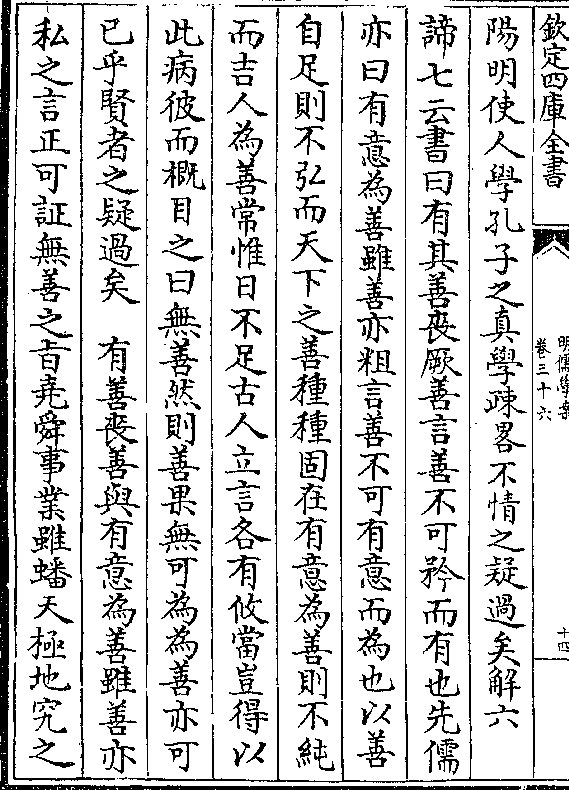 欽定四庫全書
明儒學案
卷三十六
十四
陽明使人學孔子之真學疎畧不情之疑過矣解六
諦七云書曰有其善喪厥善言善不可矜而有也先儒
亦曰有意為善雖善亦粗言善不可有意而為也以善
自足則不弘而天下之善種種固在有意為善則不純
而吉人為善常惟日不足古人立言各有攸當豈得以
此病彼而概目之曰無善然則善果無可為為善亦可
已乎賢者之疑過矣　有善喪善與有意為善雖善亦
私之言正可証無善之旨堯舜事業雖蟠天極地究之